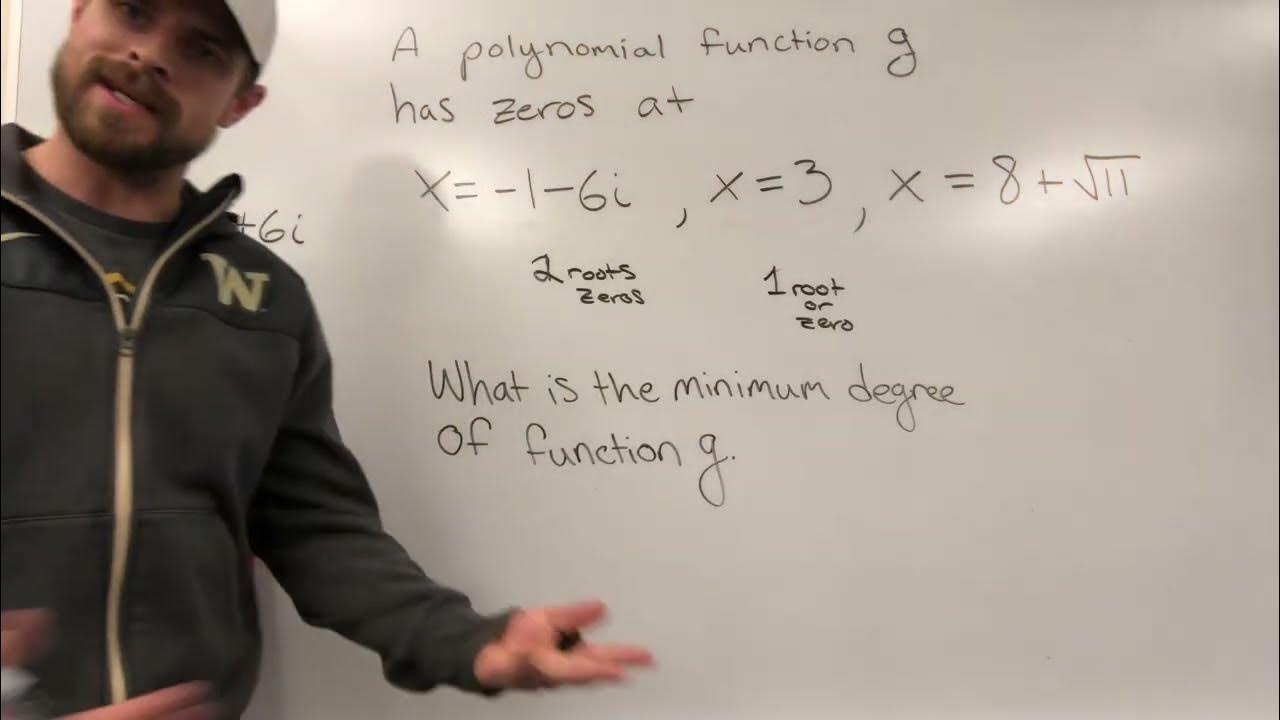 A polynomial function g
has zeros at
x = -1 - 6i , x = 3 , x = 8 + √11
+6i
2 roots
zeros
1 root
or
zero
What is the minimum degree
of function g.
W